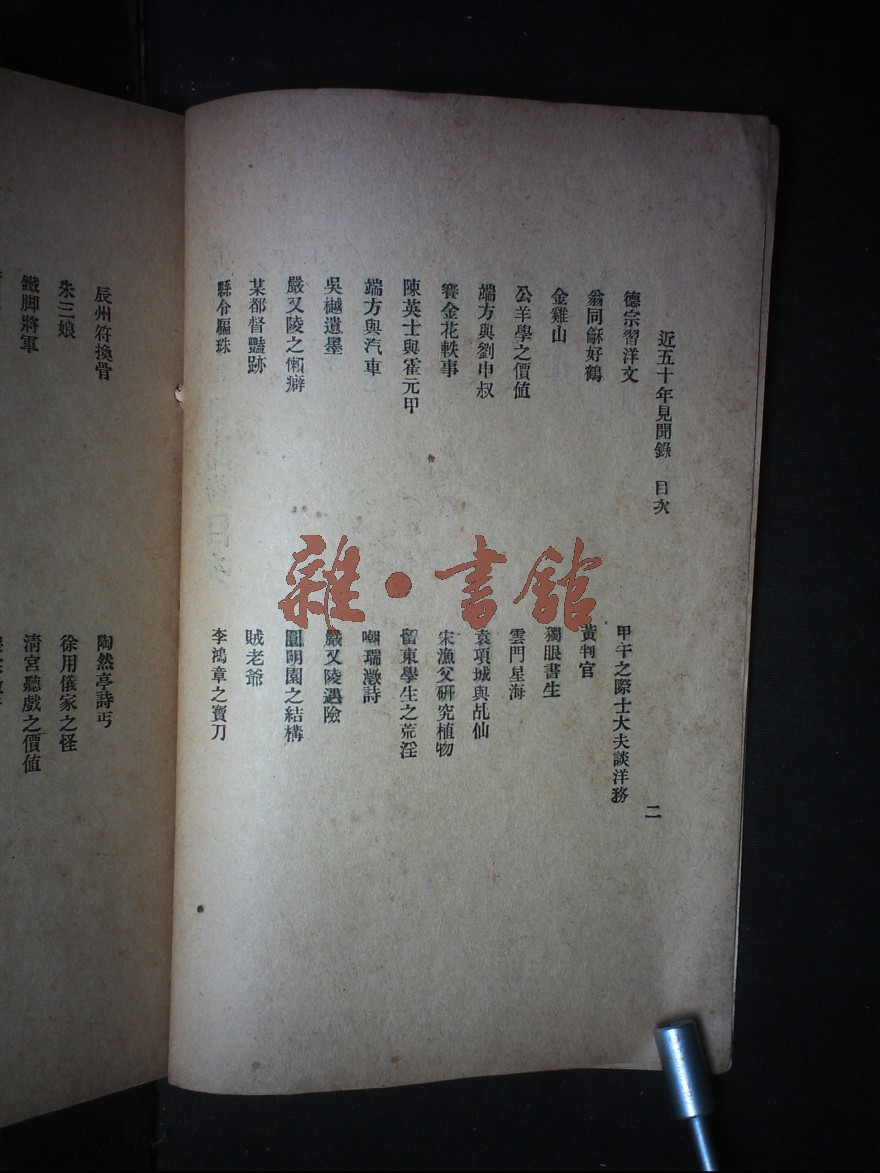 近五十年見聞錄　目次　二
德宗習洋文
甲午之際士大夫談洋務
翁同龢好鶴
黃判官
金雞山
獨眼書生
公羊學之價值
雲門星海
端方與劉申叔
袁項城與乩仙
賽金花軼事
宋漁父硏究植物
陳英士與霍元甲
留東學生之荒淫
端方與汽車
嘲瑞澂詩
吳樾遺墨
嚴又陵遇險
嚴又陵之懶癖
圓明園之結構
某都督豔跡
賊老爺
縣令騙珠
李鴻章之寶刀
辰州符換骨
陶然亭詩丐
朱三娘
徐用儀家之怪
鐵脚將軍
淸宮聽戲之價值
雜·書館